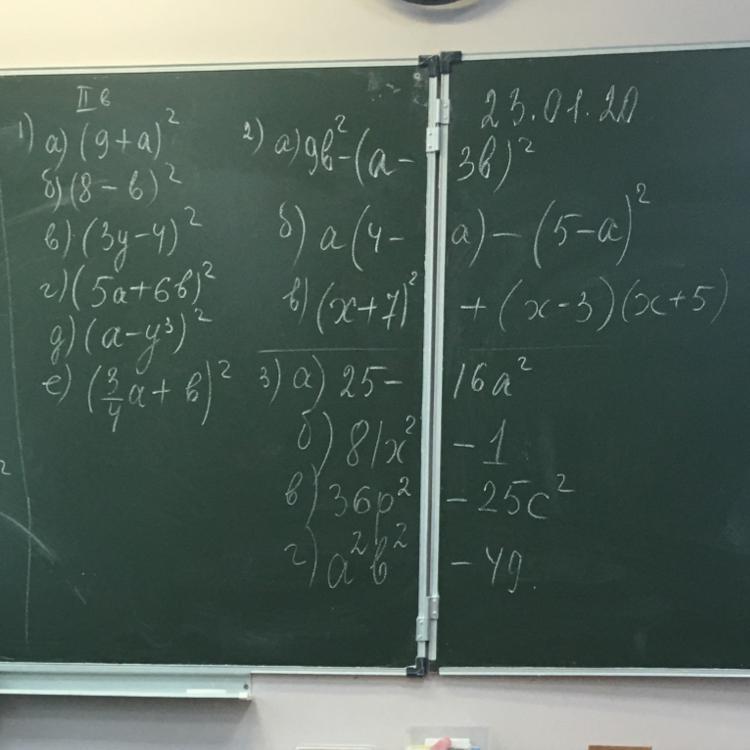 II в
23.01.20
1) а) (9+a)²
б) (8-b)²
в) (3y-4)²
г) (5a+6b)²
д) (a-y³)²
е) (3/4 a+b)²
2) а) 9b²-(a-3b)²
б) a(4-a)-(5-a)²
в) (x+7)²+(x-3)(x+5)
3) а) 25-16a²
б) 81x²-1
в) 36p²-25c²
г) a²b²-49.